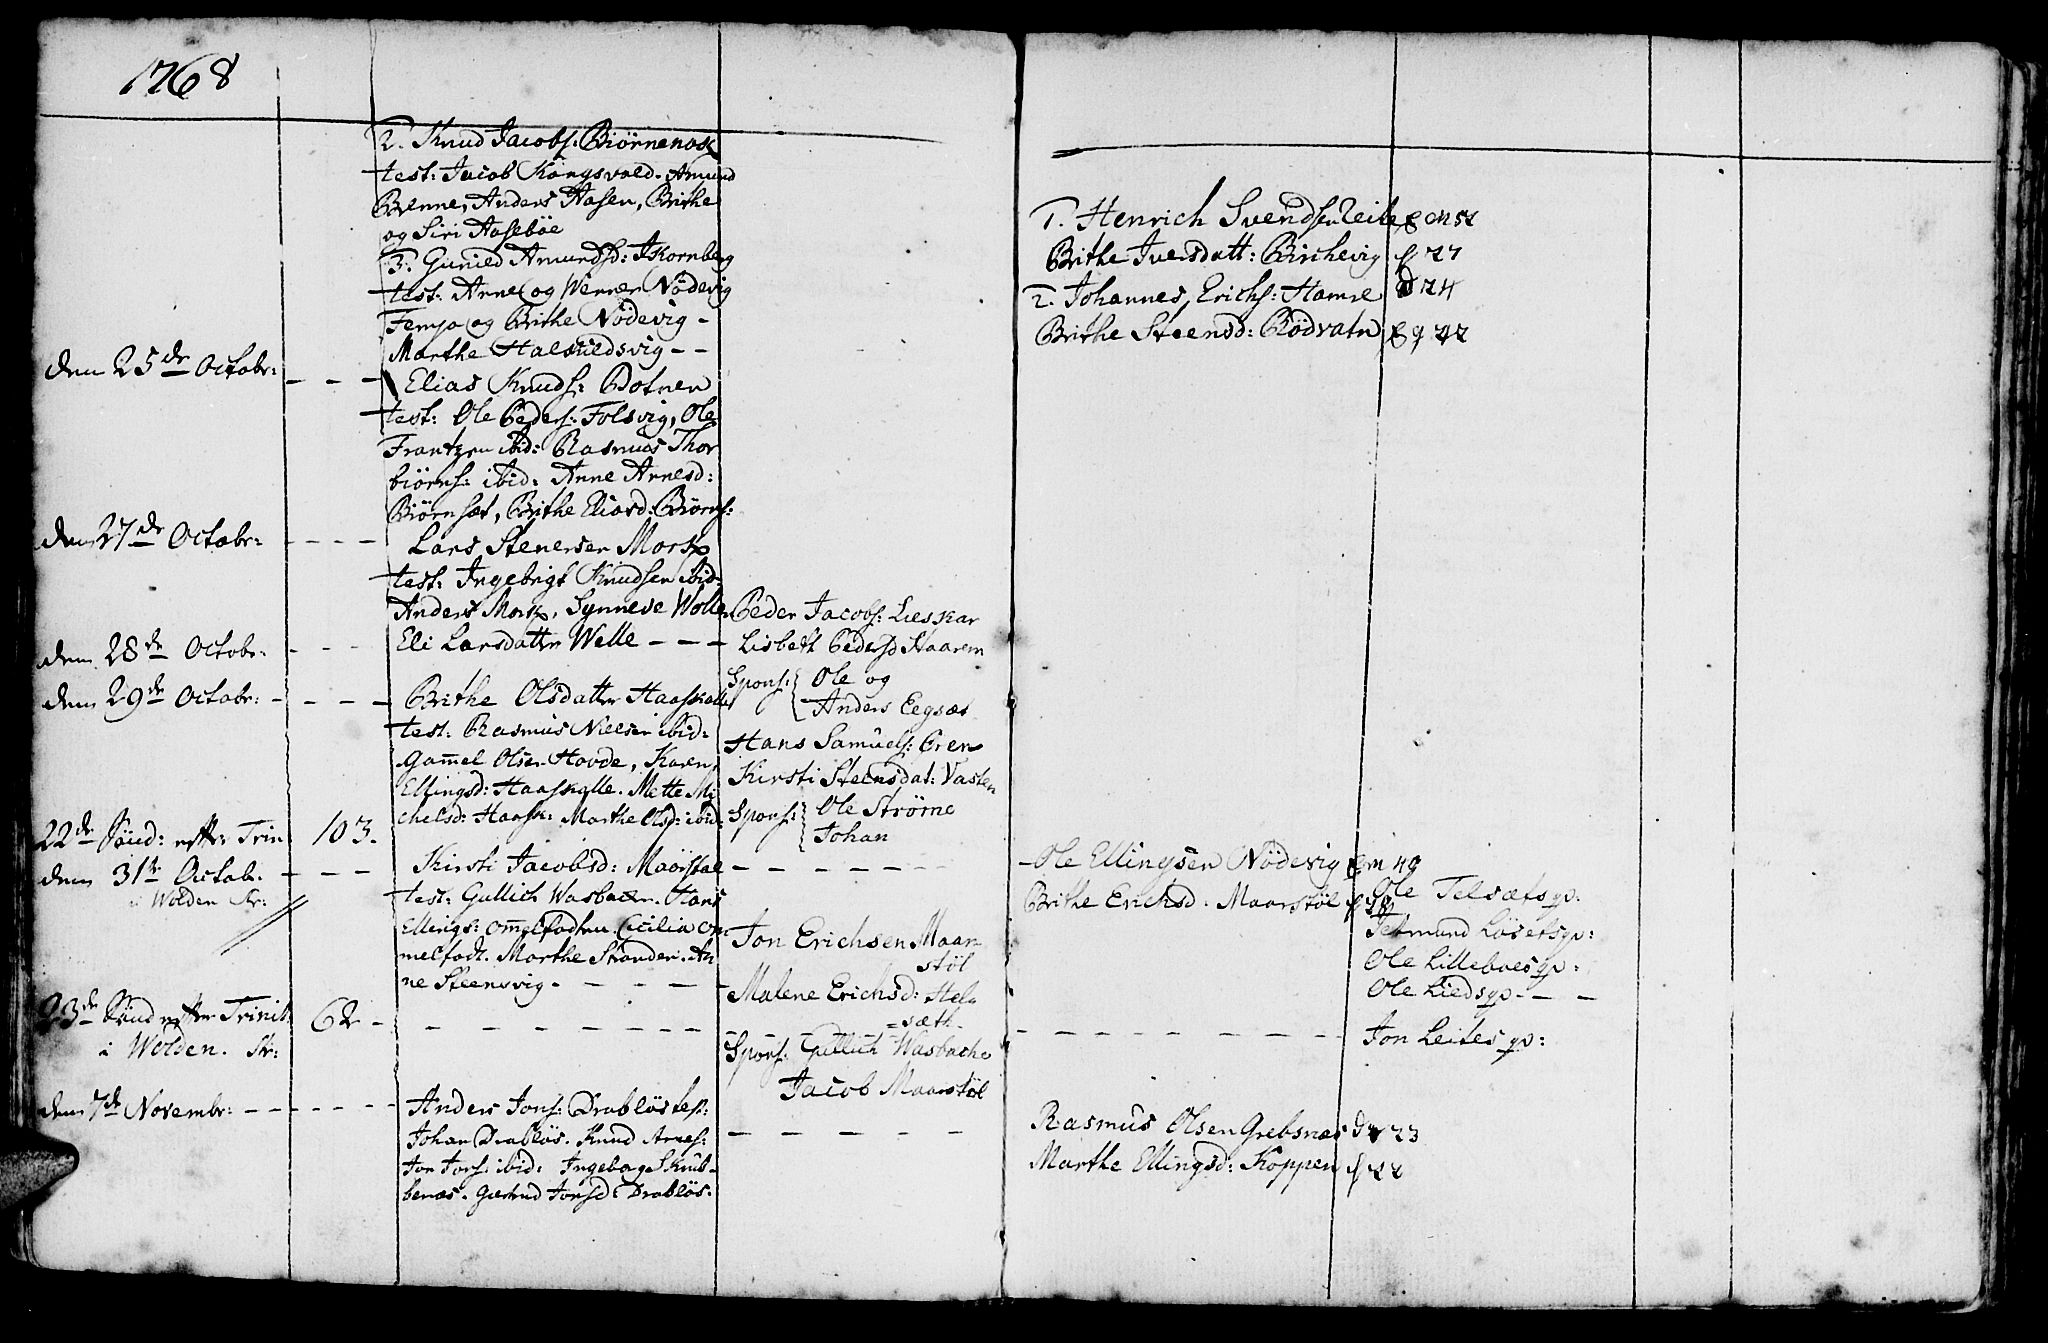 1768
2. Knud Jacobs: Biørnenak
test: Jacob Kongsvold. Amund
Brenne, Anders Aasen, Brithe
og Siri Aasebøe
3. Gunild Amundsd: Kornberg
test: Arne og Werner Nödevig
Femja og Brithe Nödevig -
Marthe Halkildsvig - -
den 25de Octobr: - - -
Elias Knuds: Botnen
test: Ole Peders: Folsvig, Ole
Frantzen ibid: Rasmus Thor
biörns: ibid: Anne Arnesd:
Biörnsæt, Brithe Eliasd: Biörns:
den 27de Octobr: - - - -
Lars Stenersen Mork
test: Ingebrigt Knudsen ibid:
Anders Mork, Synneve Wolle
den 28de Octobr: - - -
Eli Larsdatter Welle - - -
den 29de Octobr: - - - -
Brithe Olsdatter Haaskolle
test: Rasmus Nielsen ibid:
Gam̄el Olsen Hovde, Karen
Ellingsd: Haaskolle. Mette Mi
chelsd: Haask: Marthe Olsd: ibid:
22de Sönd: efter Trin 103.
den 31te Octob. - - -
i Wolden Kr:
Kirsti Jacobsd: Maarstøl
test: Gullich Wasbacken. Hans
Ellings: Om̄elfodten. Cicilia Om-
melfodt. Marthe Stranden. An
ne Steensvig - - - - -
23de Sönd efter Trinit. 62 - - - - - - - -
i Wolden. Kr:
den 7de Novembr: - - - - - -
Anders Jons: Drabløs test:
Johan Drabløs. Knud Arnes:
Jon Jons: ibid: Ingeborg Skub-
benæs. Giertrud Jonsd: Drabløs.
Peder Jacobs: Lieskar
Lisbeth Pedersd Haarem
Spons: Ole og
Anders Eegsæt
Hans Samuels: Ören
Kirsti Steensdat: Vasten
Spons: Ole Strøme
Johan
- - - - - -
Jon Erichsen Maar
støl
Malene Erichsd: Hel
=sæth
Spons: Gullich Wasbache
Jacob Maarstøl
- - - - - -
1. Henrich Svendsen Leite E M 51
Brithe Iversdatt: Birchevig f 27
2. Johannes Erichs: Hamre d 24
Brithe Steensd: Rødvatn E q 22
- Ole Ellingsen Nödevig E m 49
Brithe Erichsd: Maarstøl f
Ole Telsætsgp:
Ole Lilleboesgp:
Ole Liedsgp - - -
- - - - - - - - - Jon Leitesgp:
Rasmus Olsen Grebsnæs d 23
Marthe Ellingsd: Koppen f 22